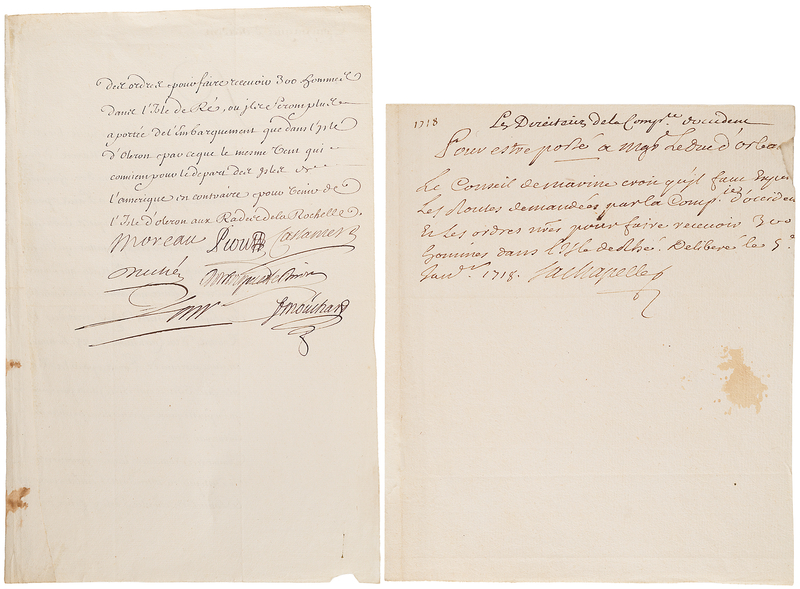 des ordres pour faire recevoir 300 hommes
dans l'Isle de Ré, ou ils seront plus
a portée de l'Embarquement que dans l'Isle
d'Oleron, par ce que le mesme Vent qui
convient pour le depart des Isles
l'amerique en contraire pour Venir de
l'Isle d'oleron aux Rades de la Rochelle.
Moreau Piou Castanier
mouchard
1718
Les Directeurs de la Comp.ie doccident
Pour estre porté a Mgr Le Duc d'Orlea
Le Conseil de marine croit qu'il faut Expe
Les Routes demandées par la Comp.ie d'occiden
Et Les ordres n.res pour faire recevoir 300
hommes dans l'Isle de Rhé. Deliberé le 5.e
Janv.r 1718. Lachapelle